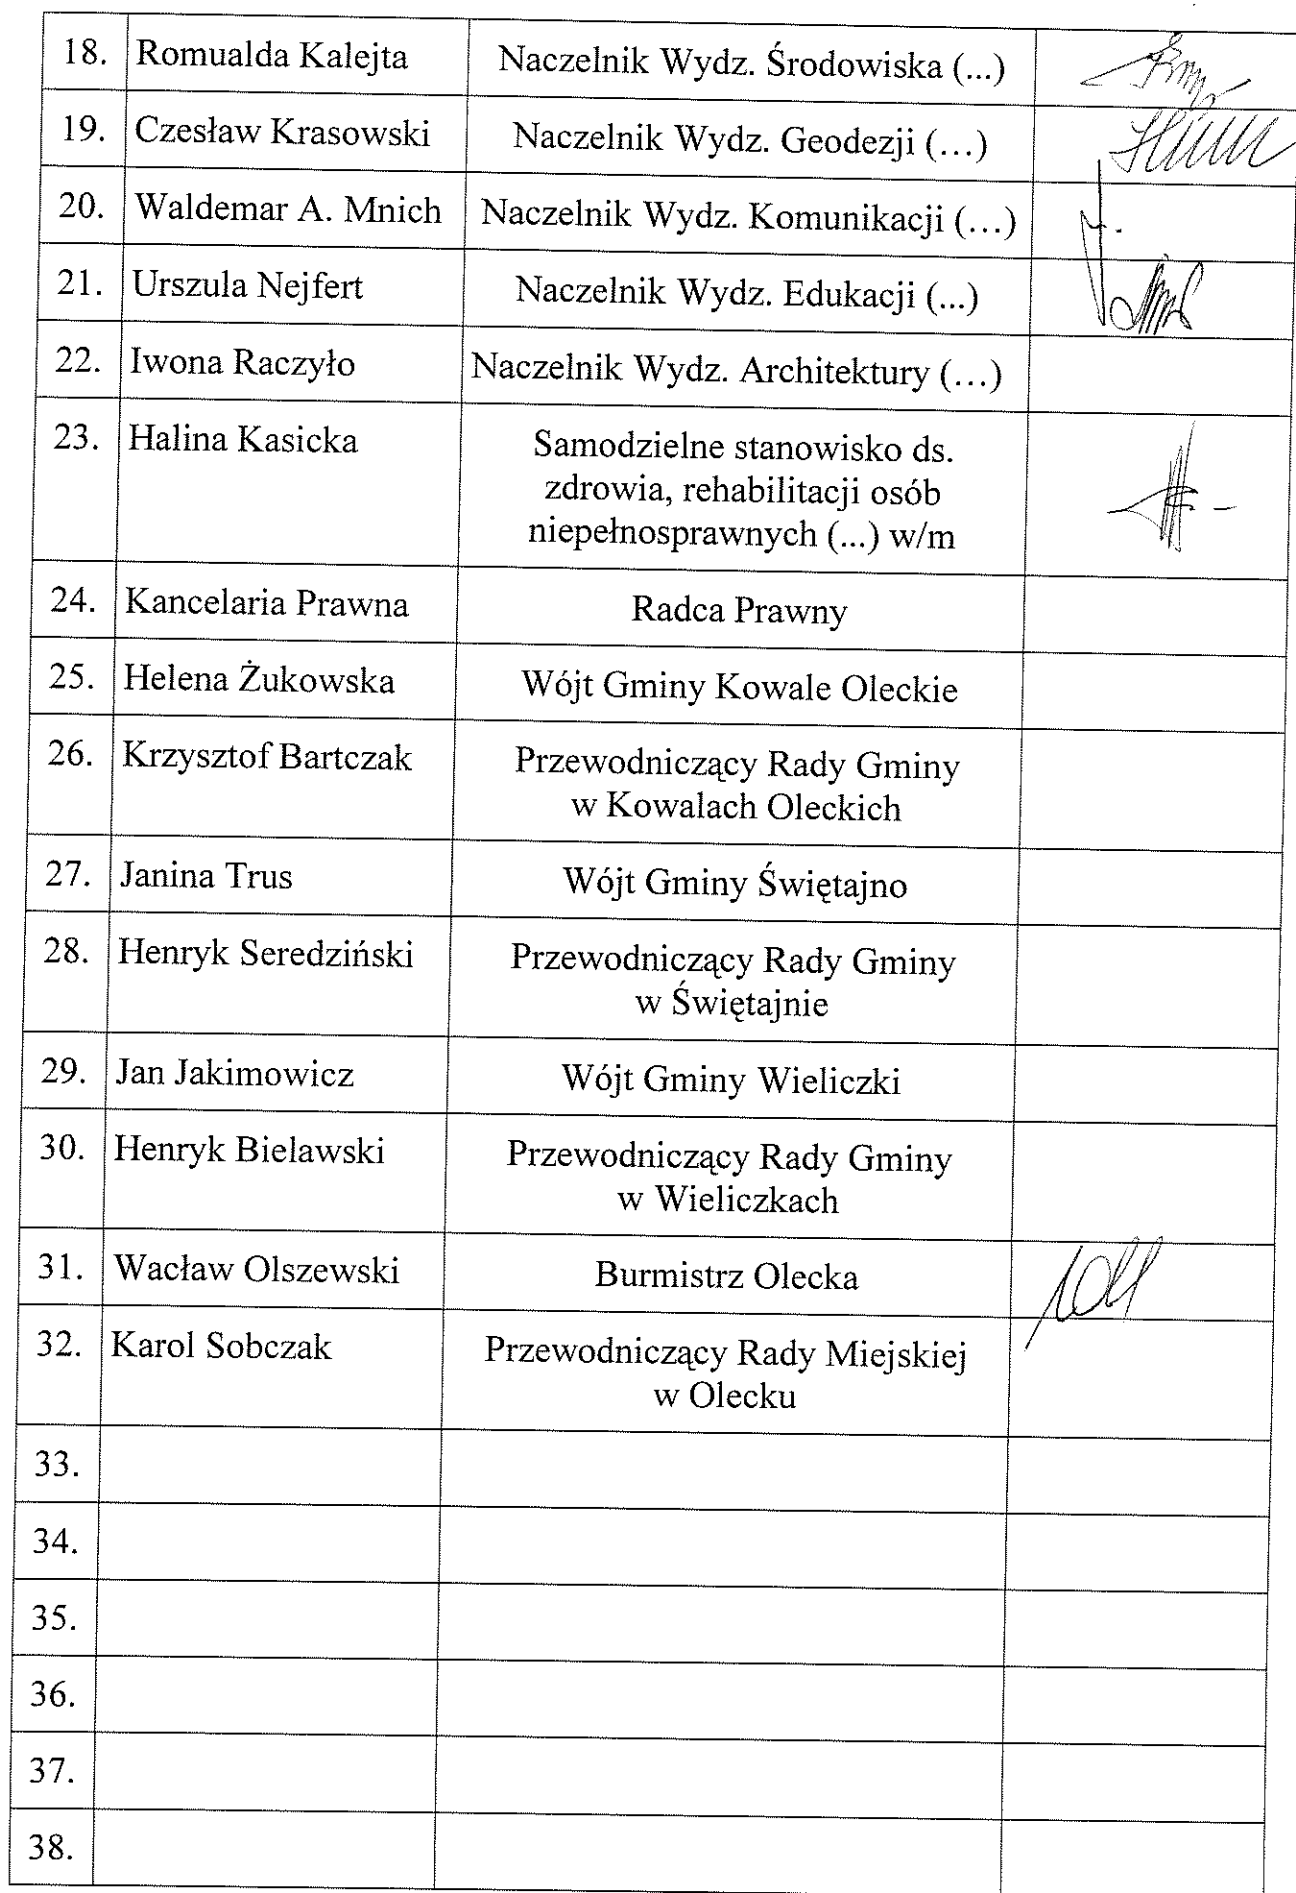 18. Romualda Kalejta Naczelnik Wydz. Środowiska (...)
19. Czesław Krasowski Naczelnik Wydz. Geodezji (…)
20. Waldemar A. Mnich Naczelnik Wydz. Komunikacji (…)
21. Urszula Nejfert Naczelnik Wydz. Edukacji (...)
22. Iwona Raczyło Naczelnik Wydz. Architektury (…)
23. Halina Kasicka Samodzielne stanowisko ds.
zdrowia, rehabilitacji osób
niepełnosprawnych (...) w/m
24. Kancelaria Prawna Radca Prawny
25. Helena Żukowska Wójt Gminy Kowale Oleckie
26. Krzysztof Bartczak Przewodniczący Rady Gminy
w Kowalach Oleckich
27. Janina Trus Wójt Gminy Świętajno
28. Henryk Seredziński Przewodniczący Rady Gminy
w Świętajnie
29. Jan Jakimowicz Wójt Gminy Wieliczki
30. Henryk Bielawski Przewodniczący Rady Gminy
w Wieliczkach
31. Wacław Olszewski Burmistrz Olecka
32. Karol Sobczak Przewodniczący Rady Miejskiej
w Olecku
33.
34.
35.
36.
37.
38.